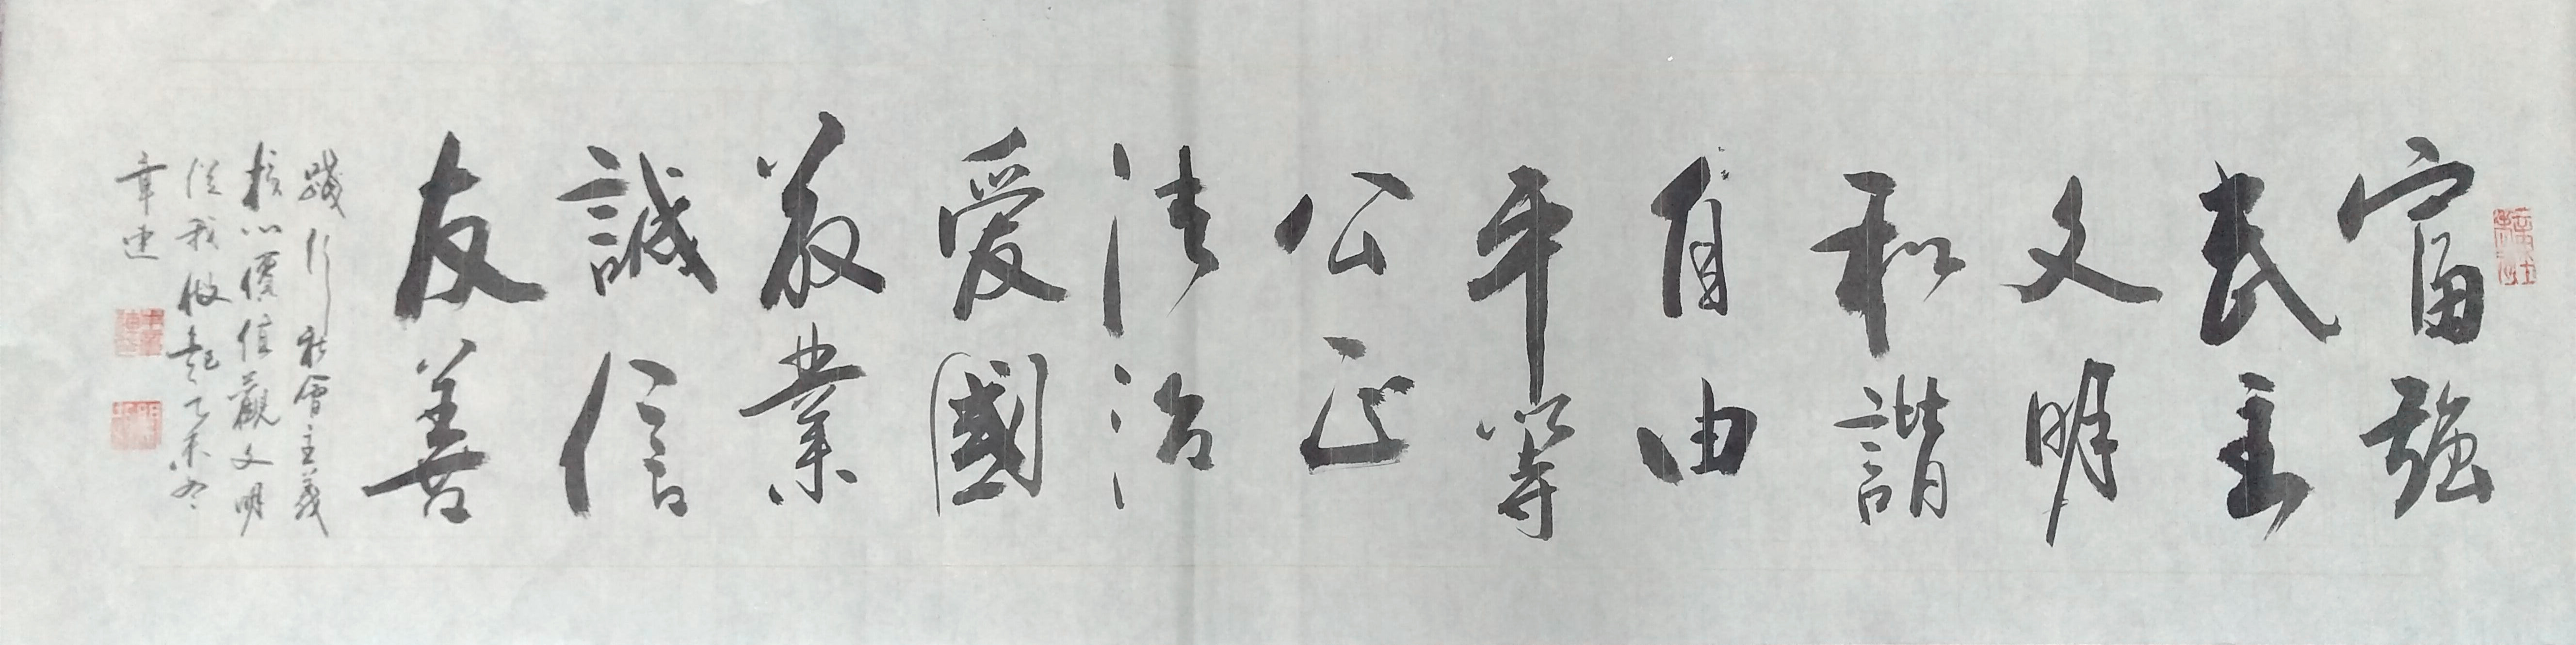 富强
民主
文明
和諧
自由
平等
公正
法治
爱國
敬業
誠信
友善
踐行社會主義
核心價值觀文明
從我做起乙未冬
章建